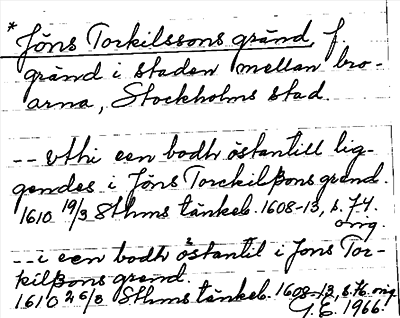 * Jöns Torkilssons gränd, f.
gränd i staden mellan bro-
arna, Stockholms stad.
-- vthi een bodh östantill lig-
gendes i Jöns Torckilßons grend.
1610 19/3 Sthms tänkeb. 1608-13, s. 74.
orig.
-- i een bodh östantil i Jons Tor-
kilßons grend.
1610 26/3 Sthms tänkeb. 1608-13, s. 76. orig.
G.E. 1966.